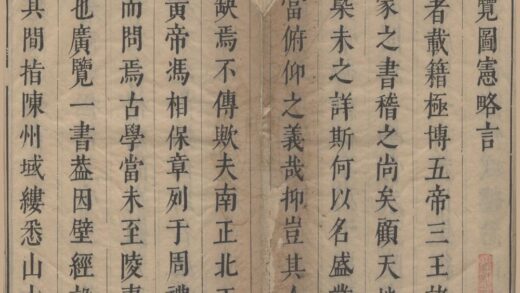 覽圖憲略言
者載籍極博五帝三王
家之書稽之尚矣顧天
槩未之詳斯何以名盛
當俯仰之義哉抑豈其
缺焉不傳歟夫南正北
黃帝馮相保章列于周禮
而問焉古學當未至陵
也廣覽一書葢因壁經
其間指陳州域縷悉山